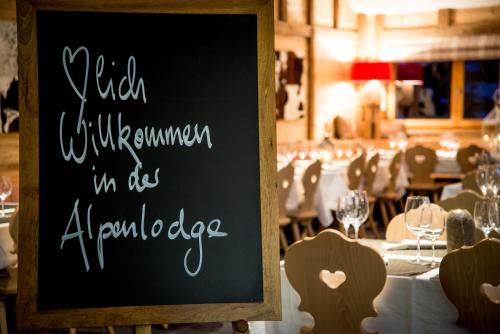 ♡lich
Willkommen
in der
Alpenlodge